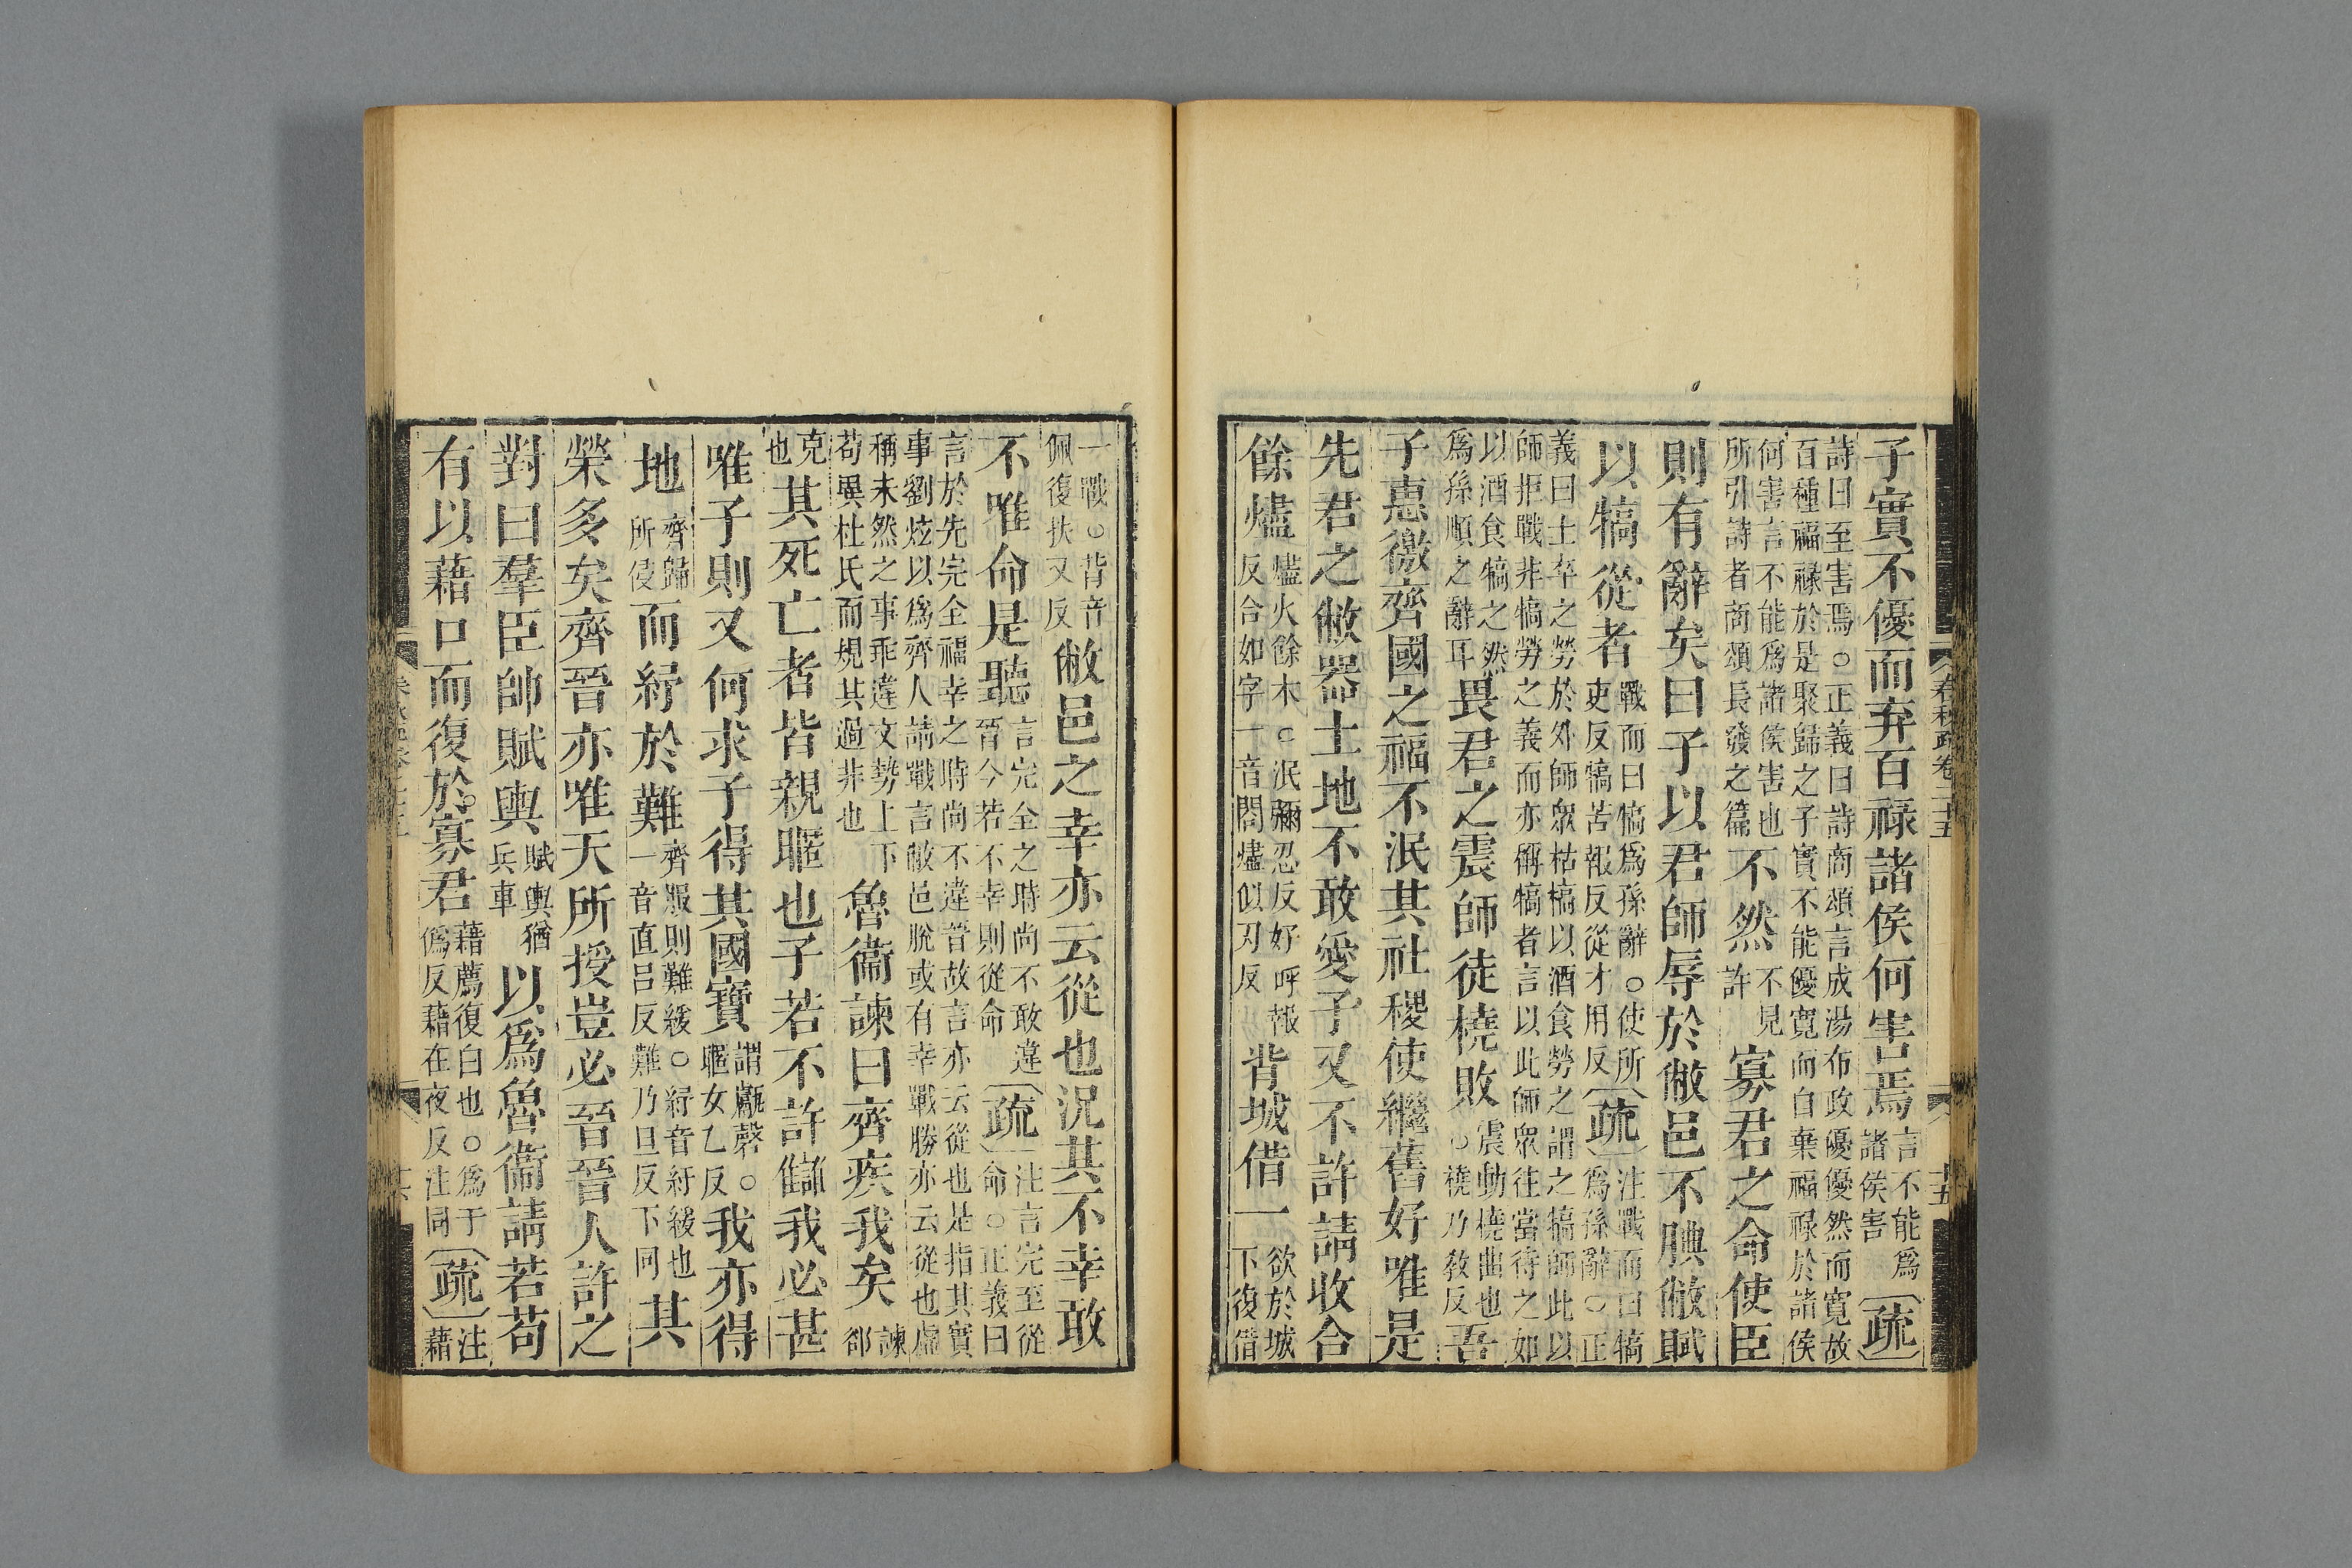 子實不優而弃百祿諸侯何害焉言不能爲諸侯害疏
詩曰至害焉○正義曰詩商頌言成湯布政優優然而寬故
百種福祿於是聚歸之子實不能優寬而自棄福祿於諸侯
何害言不能爲諸侯害也
所引詩者商頌長發之篇不然不見許寡君之命使臣
則有辭矣曰子以君師辱於敝邑不腆敝賦
以犒從者戰而曰犒爲孫辭○使所吏反犒苦報反從才用反疏注戰而曰犒爲孫辭○正
義曰士卒之勞於外師眾枯槁以酒食勞之謂之犒師此以
師拒戰非犒勞之義而亦稱犒者言以此師眾往當待之如
以酒食犒之然
爲孫順之辭耳畏君之震師徒橈敗震動橈曲也○橈乃教反吾
子惠徼齊國之福不泯其社稷使繼舊好唯是
先君之敝器土地不敢愛子又不許請收合
餘燼燼火餘木○泯彌忍反好呼報反合如字一音閤燼似刃反背城借一欲於城下復借
一戰○背音佩復扶又反敝邑之幸亦云從也況其不幸敢
不唯命是聽言完全之時尚不敢違晉今若不幸則從命疏注言完至從命○正義曰
言於先完全福幸之時尚不違晉故言亦云從也是指其實
事劉炫以爲齊人請戰言敝邑脫或有幸戰勝亦云從也虛
稱未然之事乖違文勢上下
苟異杜氏而規其過非也魯衞諫曰齊疾我矣諫郤
克也其死亡者皆親暱也子若不許讎我必甚
唯子則又何求子得其國寶謂甗磬○暱女乙反我亦得
地齊歸所侵而紓於難齊服則難緩○紓音紓緩也一音直呂反難乃旦反下同其
榮多矣齊晉亦唯天所授豈必晉晉人許之
對曰羣臣帥賦輿賦輿猶兵車以爲魯衞請若苟
有以藉口而復於寡君藉薦復白也○爲于僞反藉在夜反注同疏注藉
春秋疏卷二十五
十五